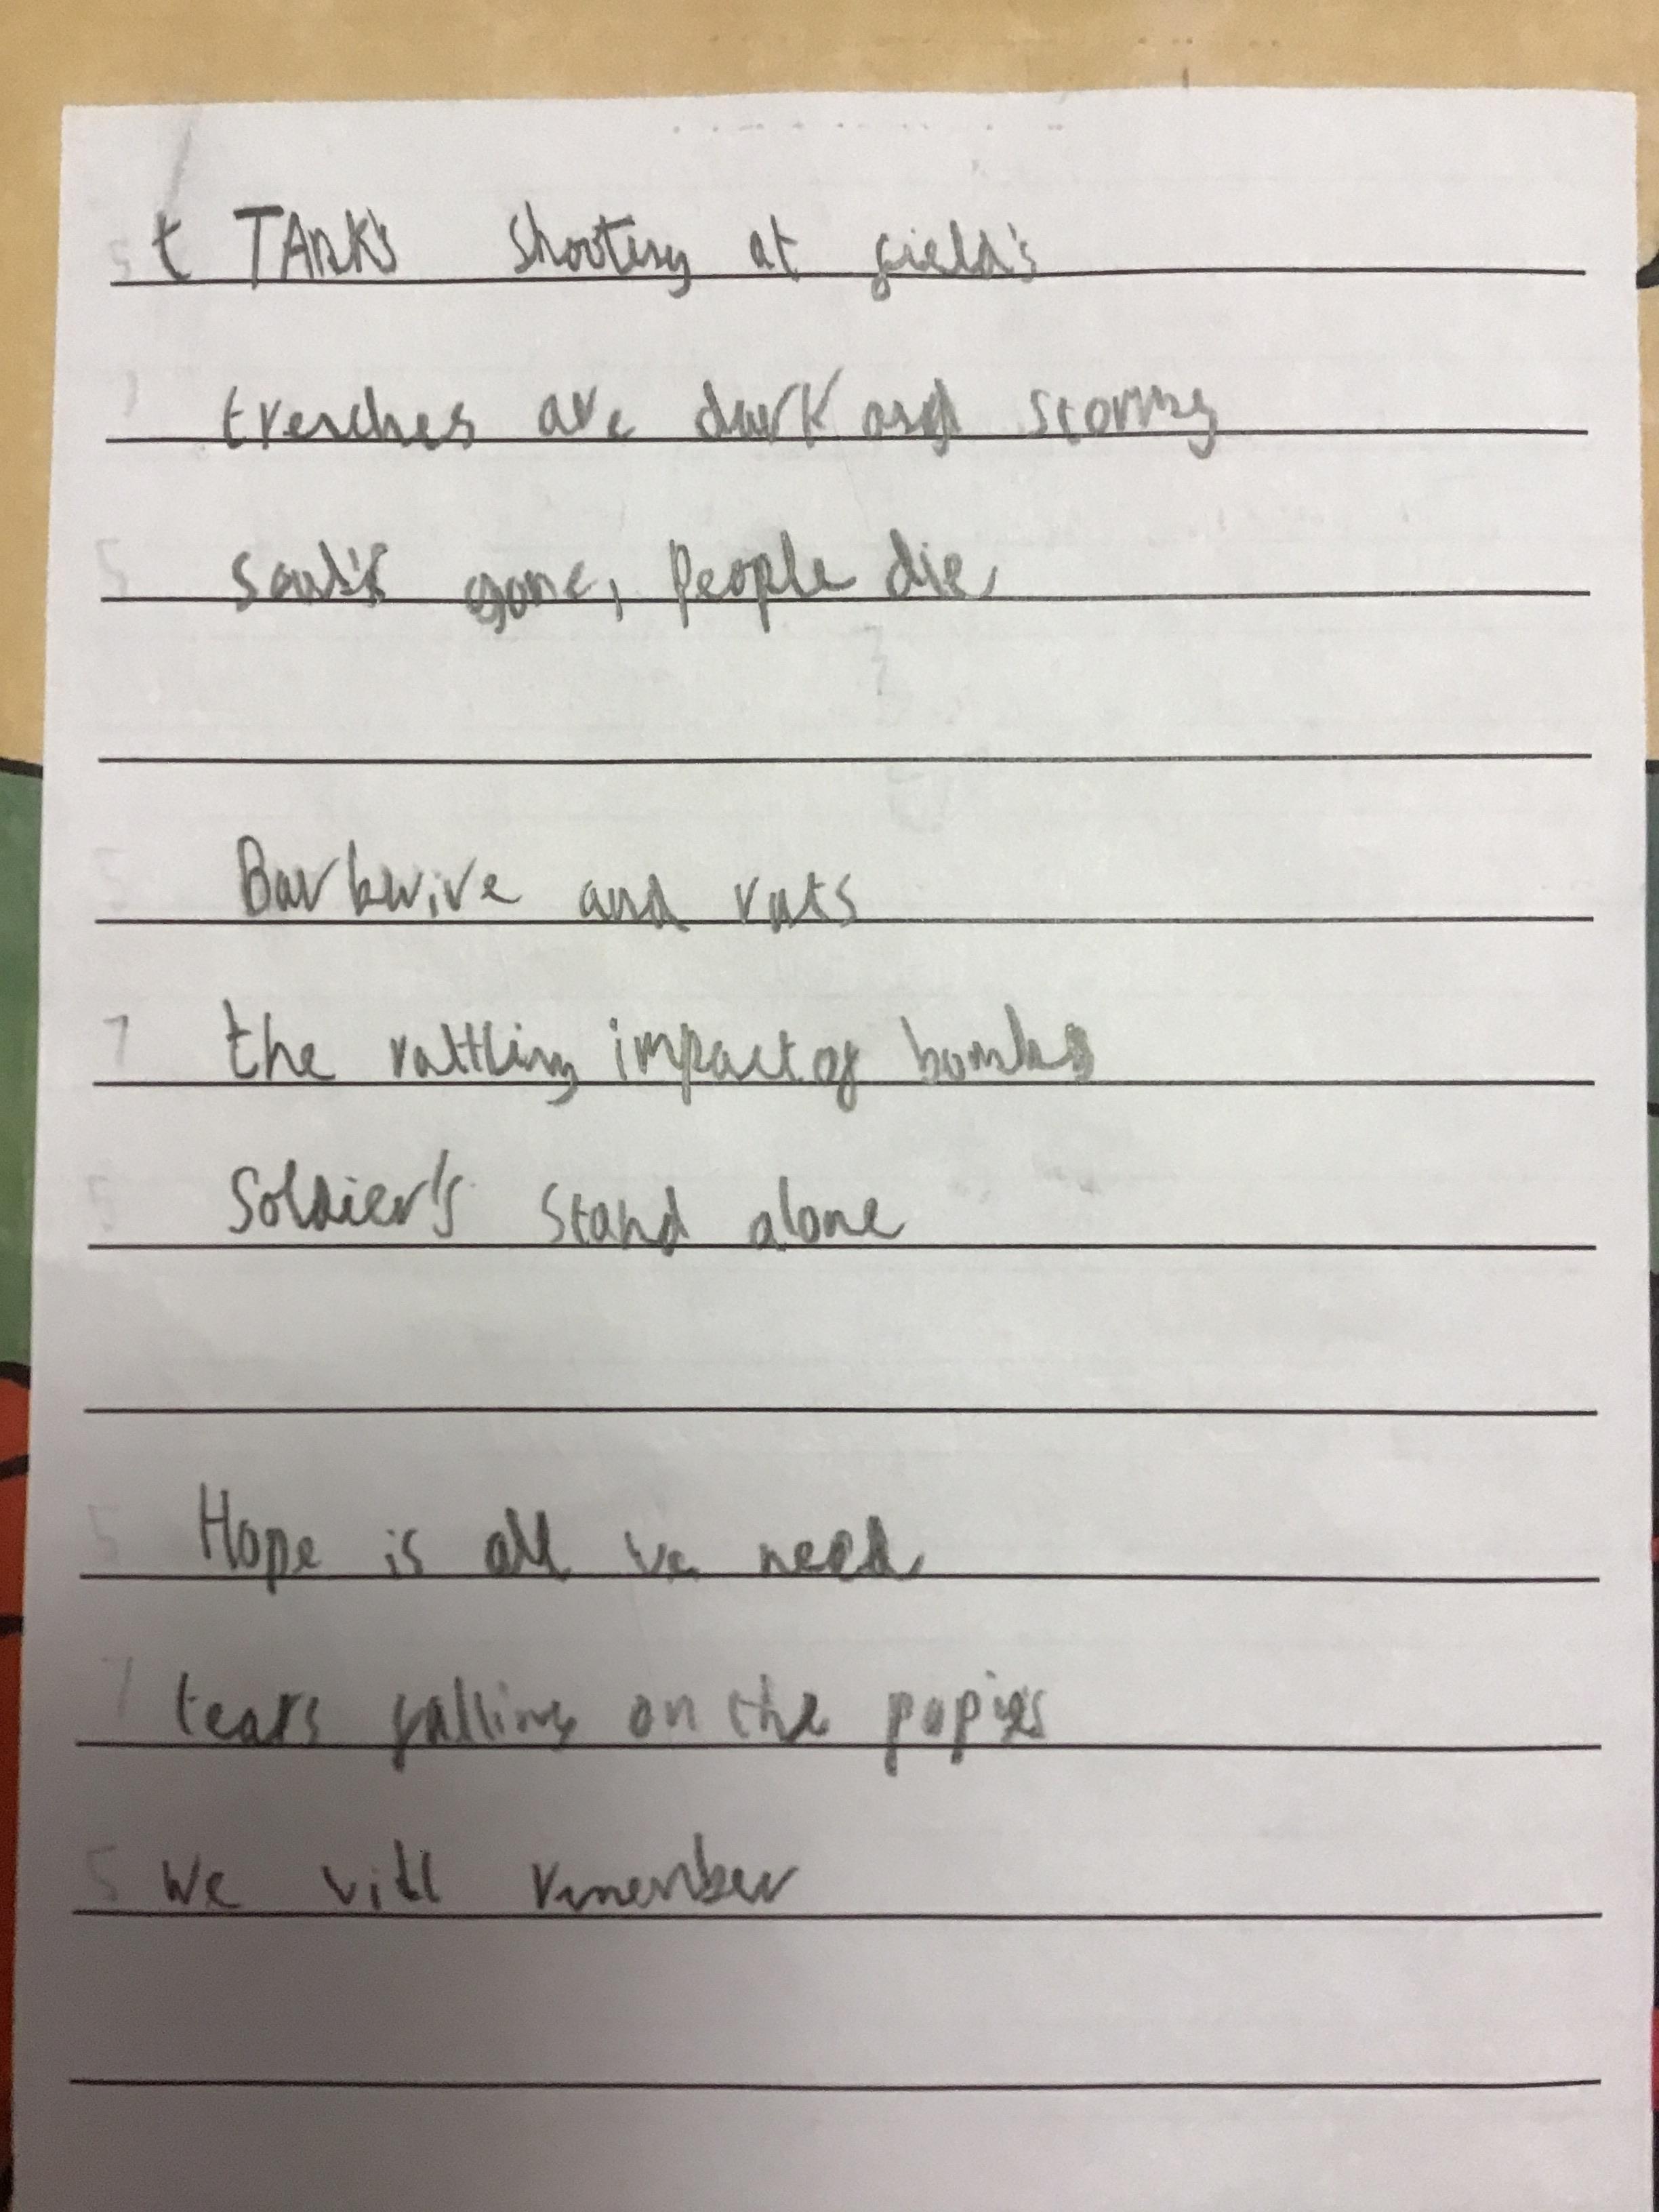 5 t TAnk's shooting at field's
7 trenches are dark and stormy
5 soul's gone, People die
5 Barbwire and rats
7 the rattling impact of bombs
5 Soldier's stand alone
5 Hope is all we need
7 tears falling on the popies
5 We will rmember